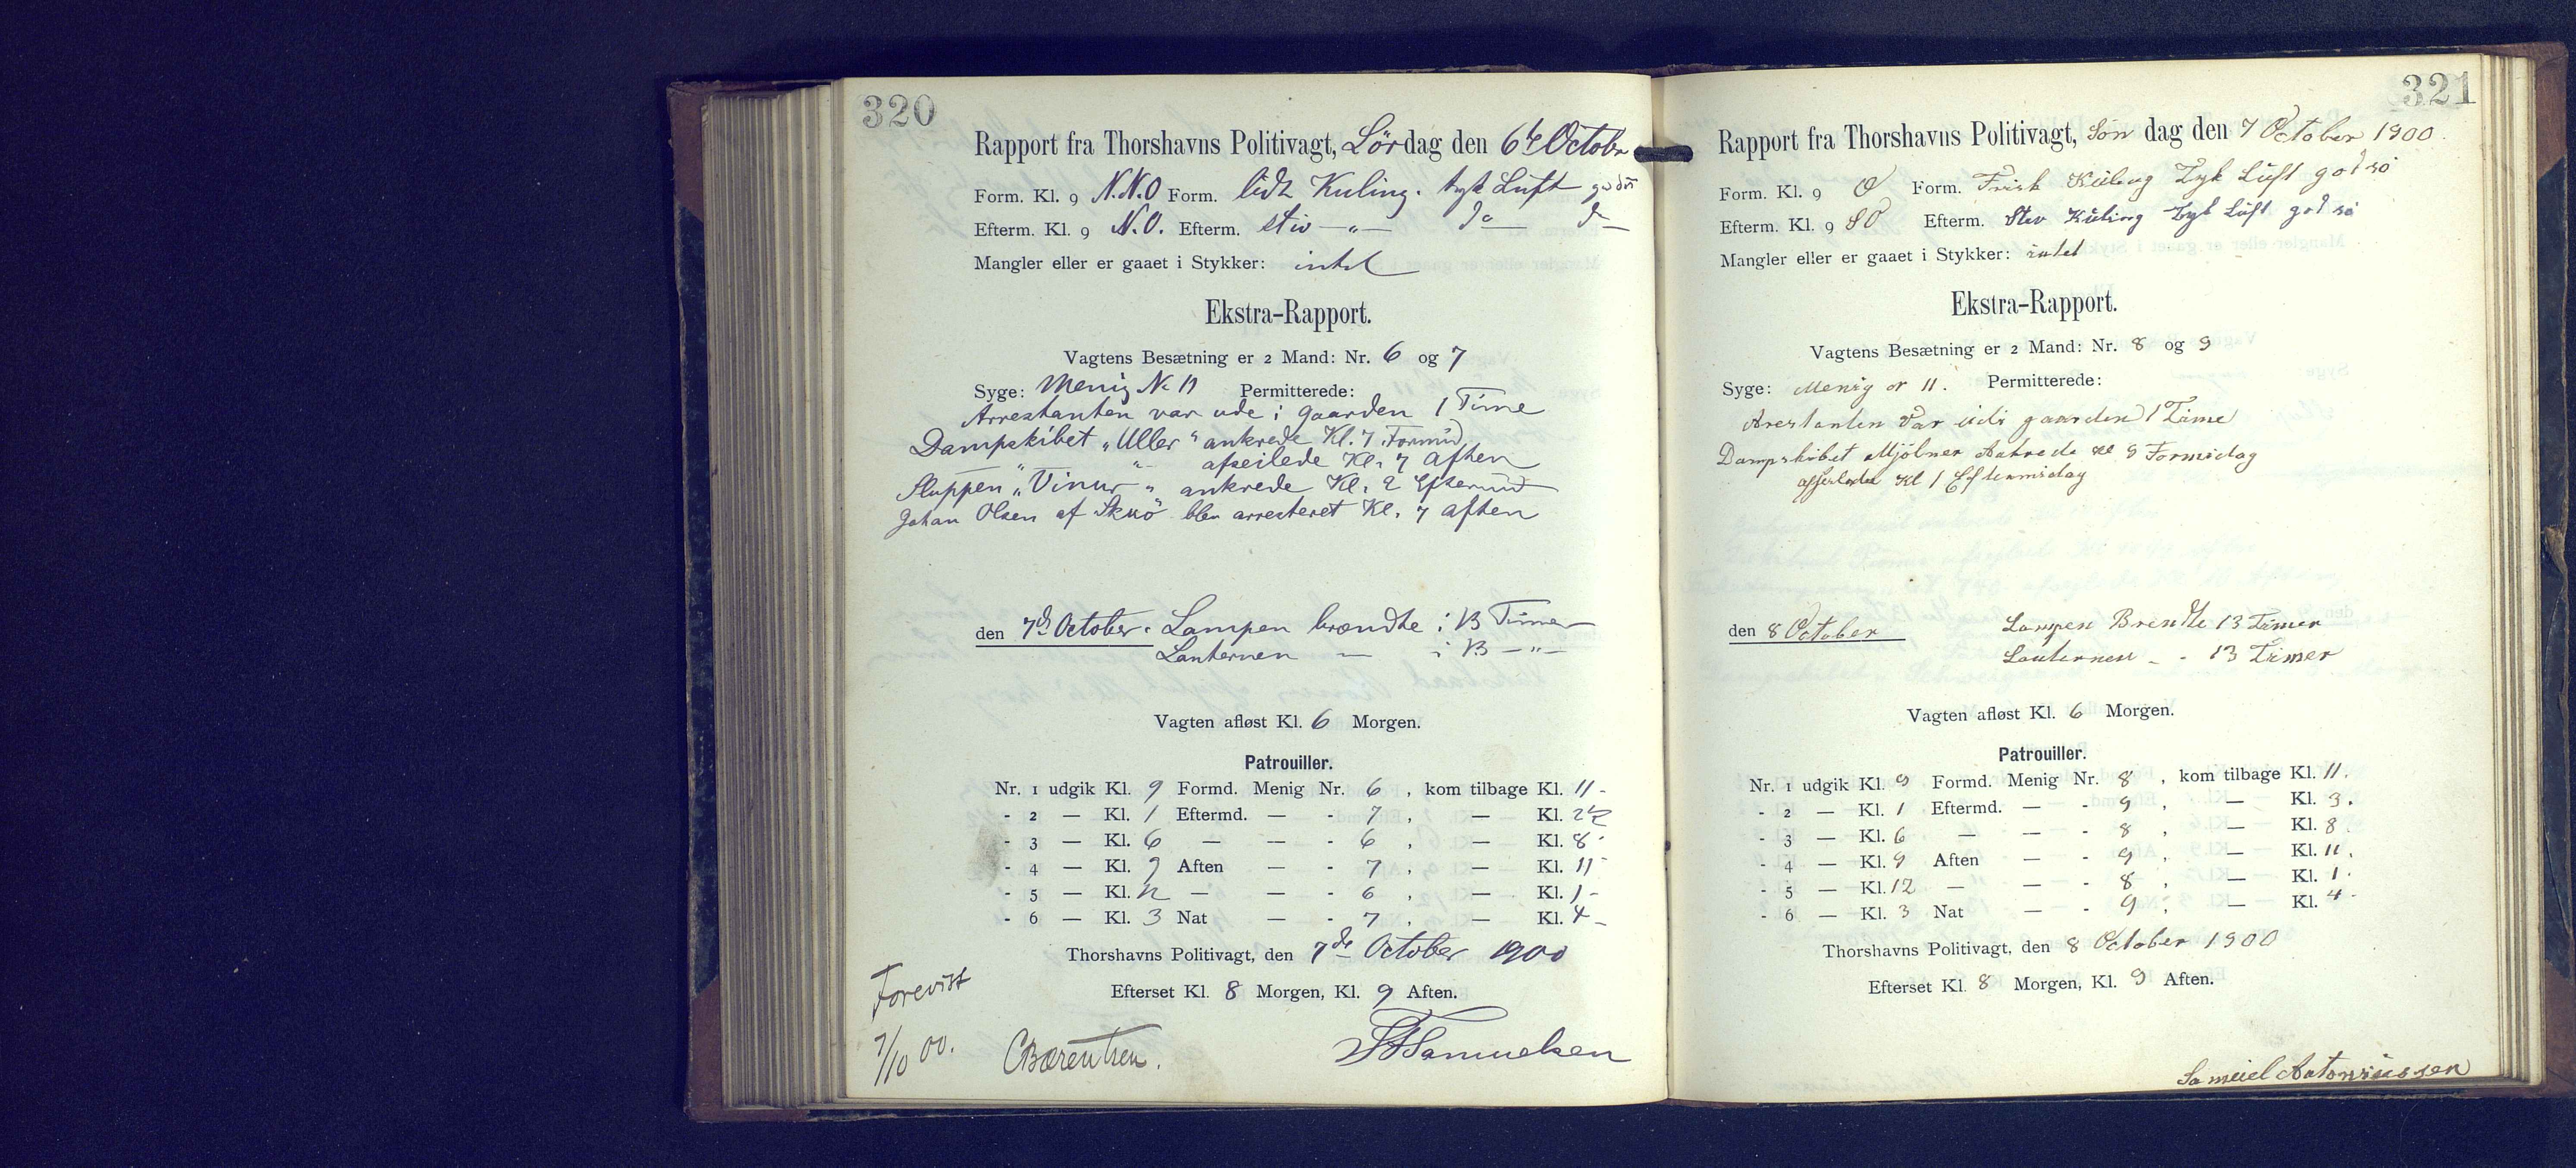 320
Rapport fra Thorshavns Politivagt, Lördag den 6te Octobr
Form. Kl. 9 N.N.O Form. lidt Kuling. tyk Luft god sö
Efterm. Kl. 9 N.O. Efterm. stiv —"— do do
Mangler eller er gaaet i Stykker: intet
Ekstra-Rapport.
Vagtens Besætning er 2 Mand: Nr. 6 og 7
Syge: Menig No 11 Permitterede:
Arrestanten var ude i gaarden 1 Time
Dampskibet „Uller“ ankrede Kl. 7 Formid
— "— afseilede Kl. 7 Aften
Sluppen „Vinur“ ankrede Kl. 2 Eftermd
Johan Olsen af Skuö blev arresteret Kl. 7 aften
den 7de October. Lampen brændte i 13 Timer
Lanternen — i 13 —"—
Vagten afløst Kl. 6 Morgen.
Patrouiller.
Nr. 1 udgik Kl. 9 Formd. Menig Nr. 6 , kom tilbage Kl. 11 -
- 2 — Kl. 1 Eftermd. — - 7 , — Kl. 2½
- 3 — Kl. 6 — — - 6 , — Kl. 8 -
- 4 — Kl. 9 Aften — - 7 , — Kl. 11 -
- 5 — Kl. 12 — — - 6 , — Kl. 1 -
- 6 — Kl. 3 Nat — - 7 , — Kl. 4 -
Thorshavns Politivagt, den 7de October 1900
Efterset Kl. 8 Morgen, Kl. 9 Aften.
Forevist
7/10 00. CBærentsen.
Samuelsen
321
Rapport fra Thorshavns Politivagt, Søn dag den 7 October 1900.
Form. Kl. 9 O Form. Frisk Kuling Tyk Luft god sö
Efterm. Kl. 9 SO Efterm. Stev Kuling Tyk Luft god sö
Mangler eller er gaaet i Stykker: intet
Ekstra-Rapport.
Vagtens Besætning er 2 Mand: Nr. 8 og 9
Syge: Menig nr 11. Permitterede:
Arestanten Var udi gaarden 1 Time
Dampskibet Mjölner Ankrede Kl 9 Formidag
afseilede Kl 1 Eftermidag
den 8 October Lampen Brendte 13 Timer
Lanternen - - 13 Timer
Vagten afløst Kl. 6 Morgen.
Patrouiller.
Nr. 1 udgik Kl. 9 Formd. Menig Nr. 8 , kom tilbage Kl. 11.
- 2 — Kl. 1 Eftermd. — - 9 , — Kl. 3.
- 3 — Kl. 6 — — - 8 , — Kl. 8
- 4 — Kl. 9 Aften — - 9 , — Kl. 11.
- 5 — Kl. 12 — — - 8 , — Kl. 1.
- 6 — Kl. 3 Nat — - 9 , — Kl. 4.
Thorshavns Politivagt, den 8 October 1900
Efterset Kl. 8 Morgen, Kl. 9 Aften.
Samuel Antoniussen